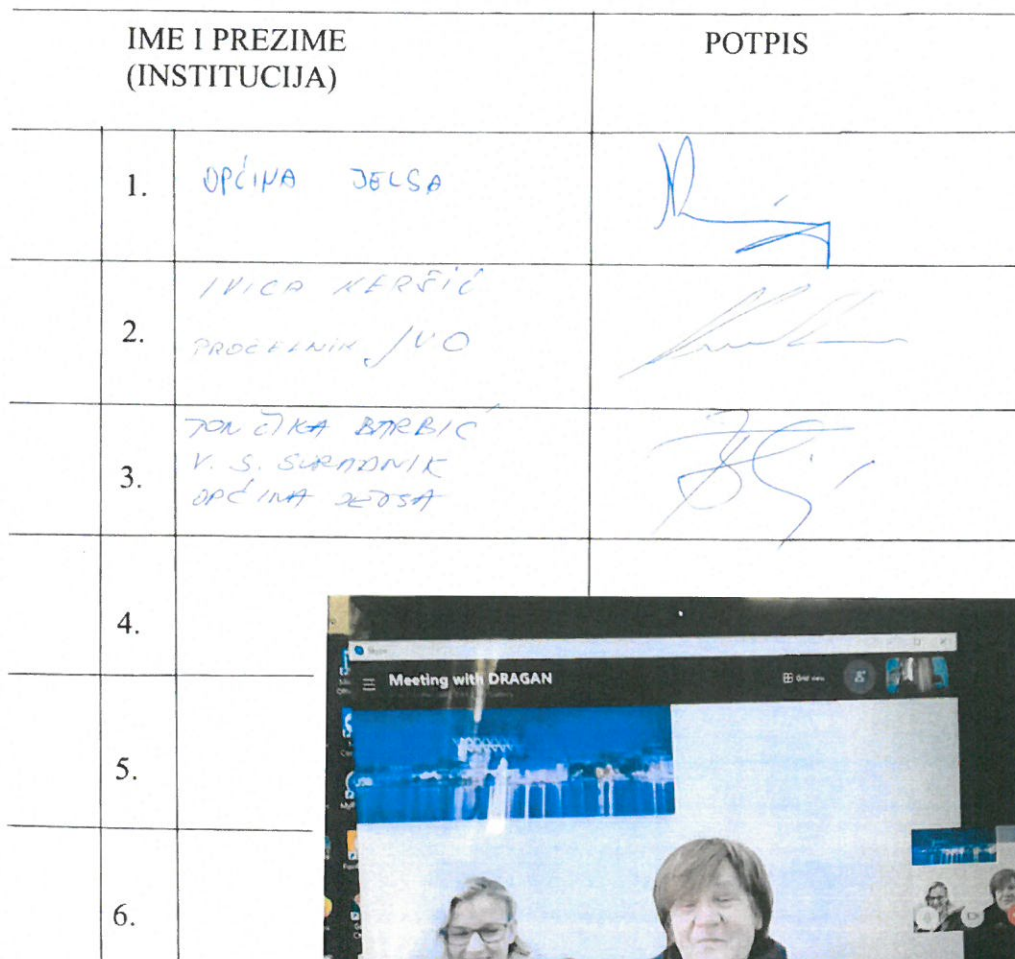 IME I PREZIME
(INSTITUCIJA)
POTPIS
1. OPĆINA JELSA
2. IVICA KERŠIĆ
PROČELNIK JUO
3. TONČIKA BARBIĆ
V. S. SURADNIK
OPĆINA JELSA
4.
5.
6.
Skype
Meeting with DRAGAN
Grid view